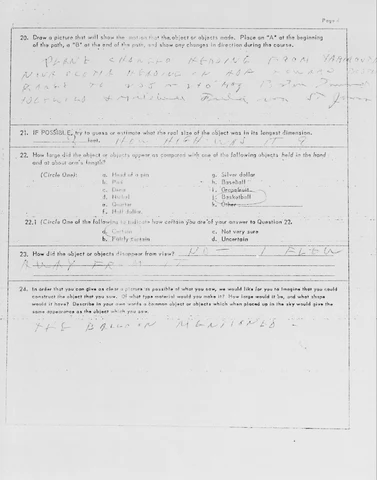 Page 4
20. Draw a picture that will show the motion that the object or objects made. Place an "A" at the beginning
of the path, a "B" at the end of the path, and show any changes in direction during the course.
PLANE CHANGED HEADING FROM
21. IF POSSIBLE, try to guess or estimate what the real size of the object was in its longest dimension.
feet. HOW HIGH WAS IT ?
22. How large did the object or objects appear as compared with one of the following objects held in the hand
and at about arm's length?
(Circle One): a. Head of a pin g. Silver dollar
b. Pea h. Baseball
c. Dime i. Grapefruit
d. Nickel j. Basketball
e. Quarter k. Other
f. Half dollar
22.1 (Circle One of the following to indicate how certain you are of your answer to Question 22.
a. Certain c. Not very sure
b. Fairly certain d. Uncertain
23. How did the object or objects disappear from view? I FLEW
AWAY FROM IT
24. In order that you can give as clear a picture as possible of what you saw, we would like for you to imagine that you could
construct the object that you saw. Of what type material would you make it? How large would it be, and what shape
would it have? Describe in your own words a common object or objects which when placed up in the sky would give the
same appearance as the object which you saw.
THE BALLOON MENTIONED